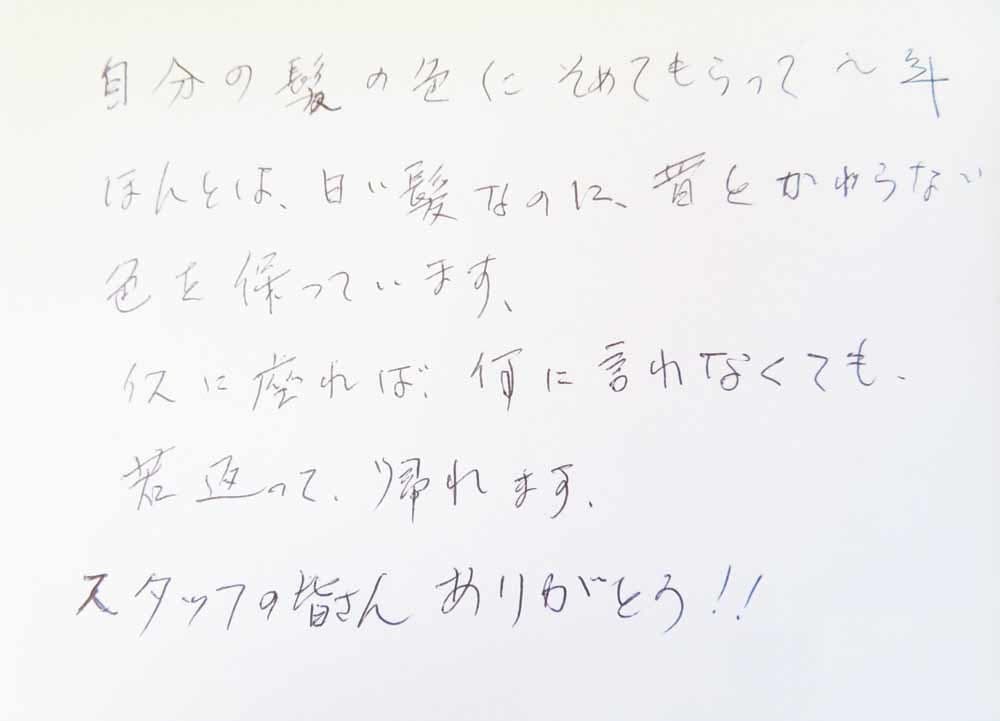 自分の髪の色にそめてもらって〜年
ほんとは、白い髪なのに、昔とかわらない
色を保っています、
イスに座れば、何に言れなくても、
若返って、帰れます、
スタッフの皆さん ありがとう!!